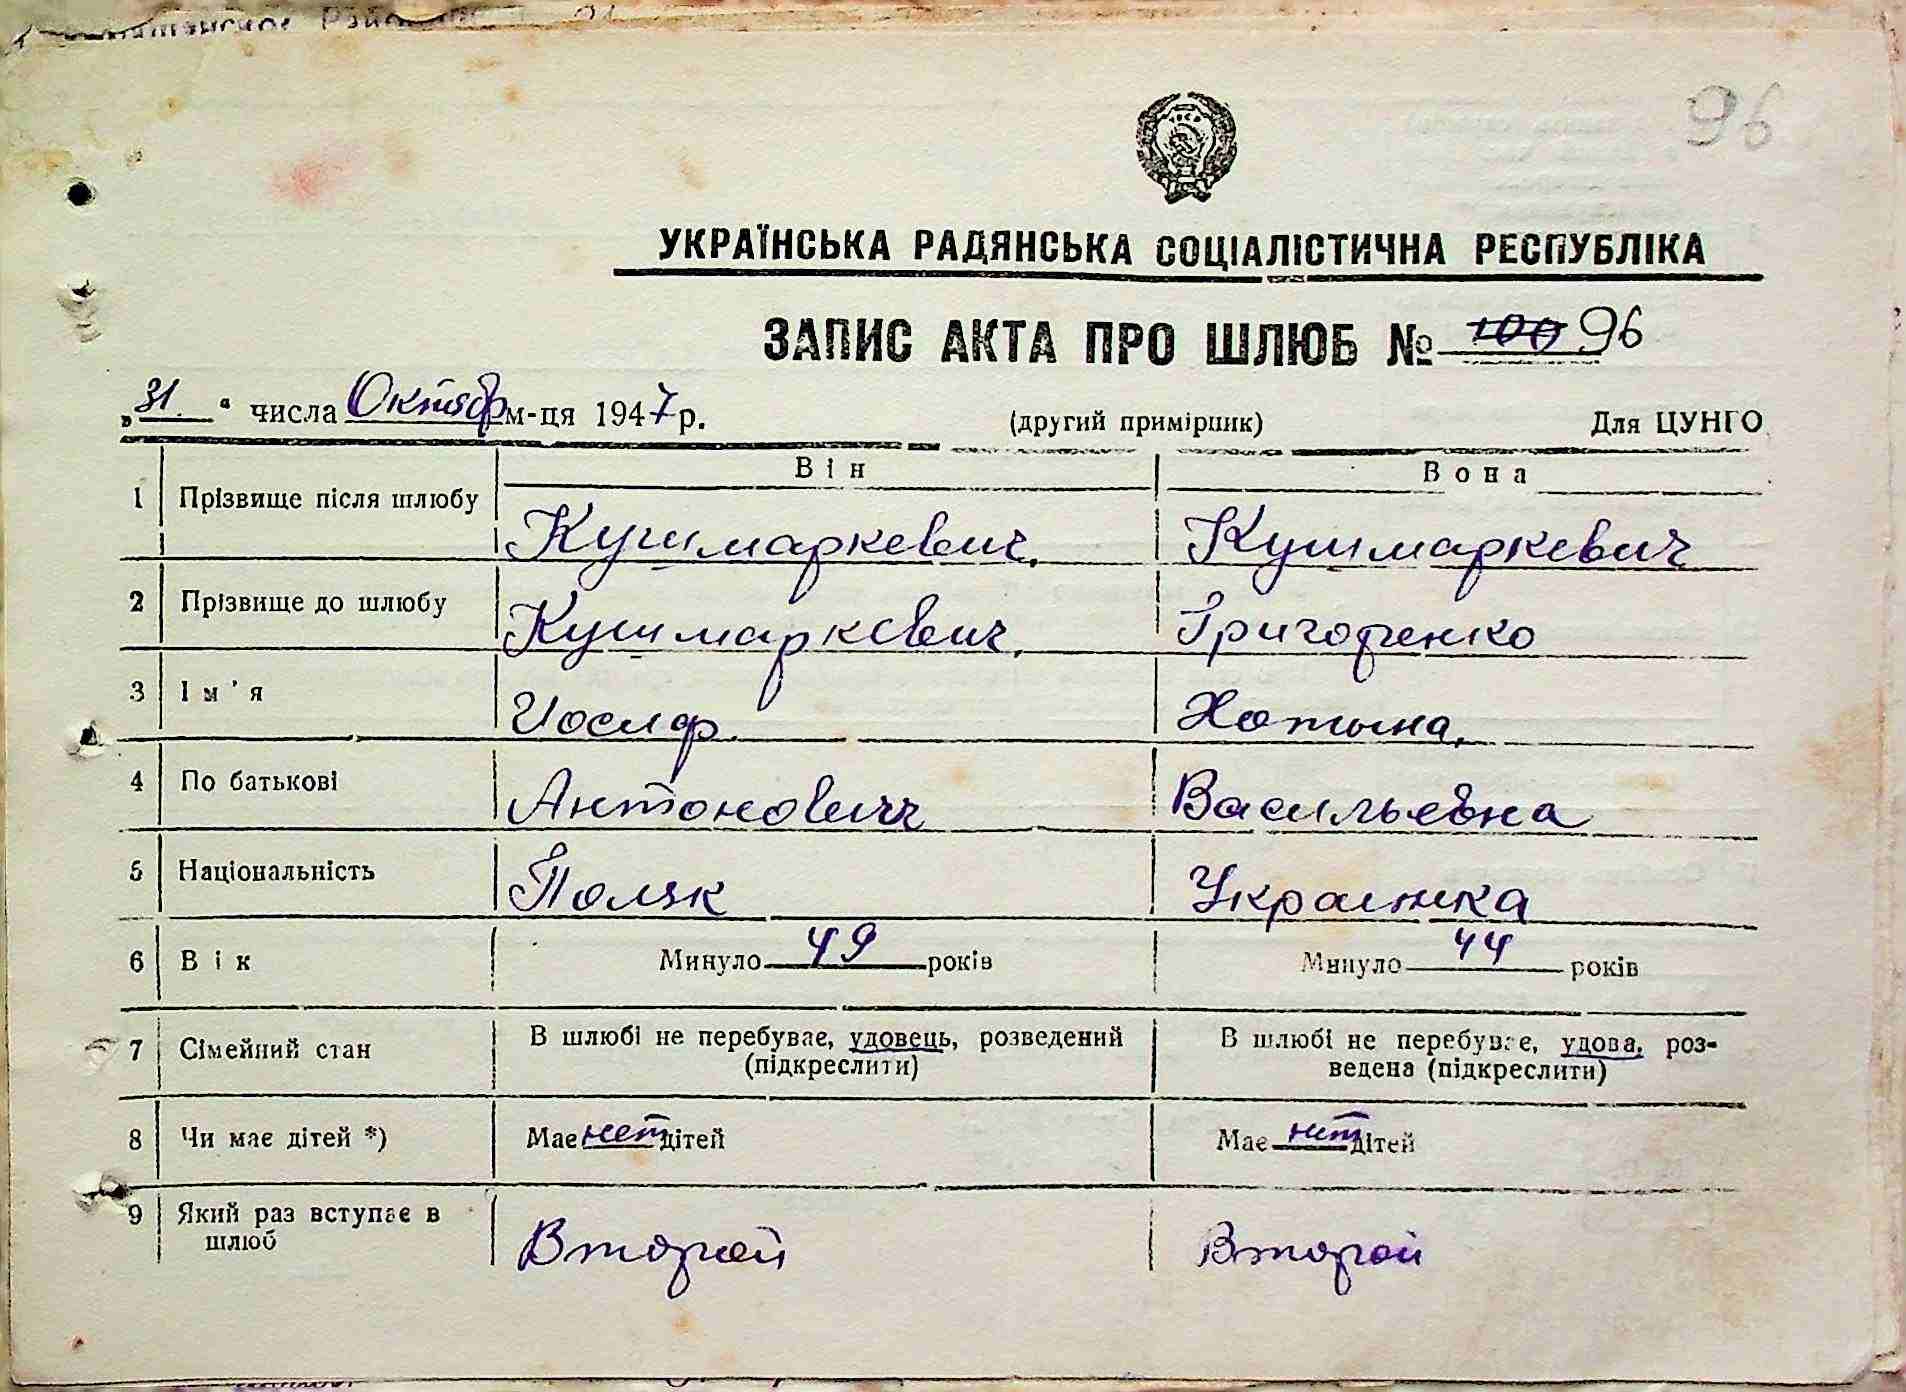 96
УКРАЇНСЬКА РАДЯНСЬКА СОЦІАЛІСТИЧНА РЕСПУБЛІКА
ЗАПИС АКТА ПРО ШЛЮБ № 100 96
„31." числа Октябр м-ця 1947 р. (другий примірник) Для ЦУНГО
Він Вона
1 Прізвище після шлюбу Кушмаркевич. Кушмаркевич
2 Прізвище до шлюбу Кушмаркевич. Григоренко
3 Ім'я Иосиф. Хотына.
4 По батькові Антонович Васильевна
5 Національність Поляк Украинка
6 Вік Минуло 49 років Минуло 44 років
7 Сімейний стан В шлюбі не перебуває, удовець, розведений В шлюбі не перебуває, удова, роз-
(підкреслити) ведена (підкреслити)
8 Чи має дітей *) Має нет дітей Має нет дітей
9 Який раз вступає в
шлюб Второй Второй